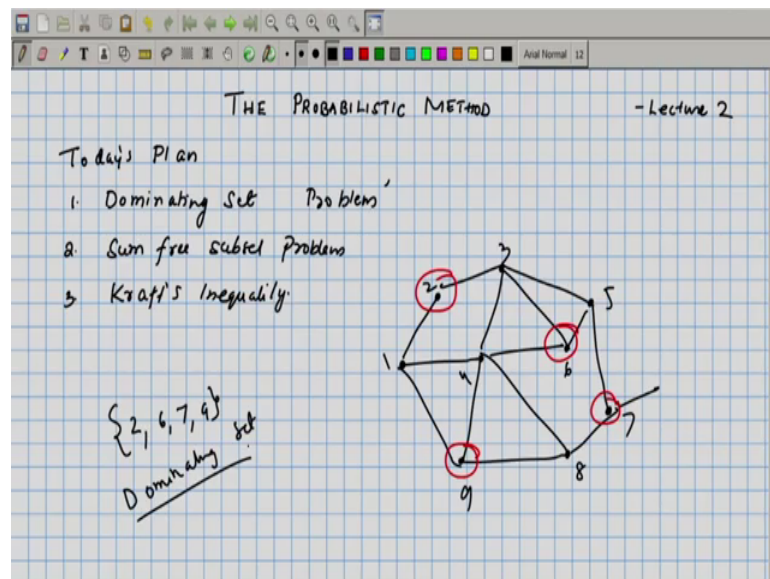 T
Arial Normal 12
THE PROBABILISTIC METHOD - Lecture 2
Today's Plan
1. Dominating Set Problem
2. Sum free subset Problem
3 Kraft's Inequality.
3
2
5
1
4
6
{2, 6, 7, 9}
7
Dominating set
8
9